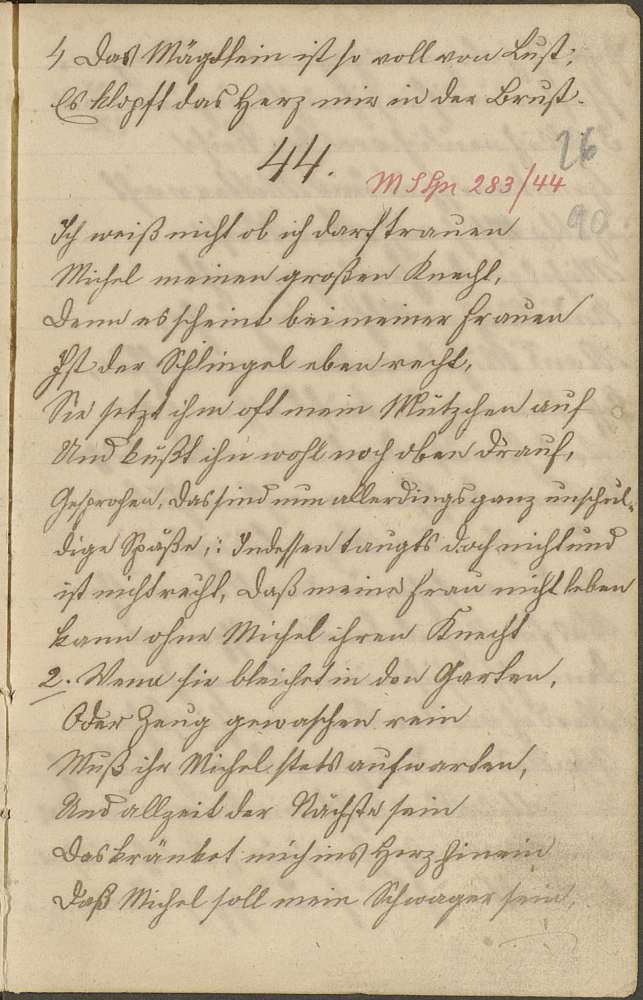 4 Das Mägdlein ist so voll von Lust;
Es klopft das Herz mir in der Brust.
26
44.
283/44
90
Ich weiß nicht ob ich darf trauen
Michel meinen großen Knecht,
Denn es scheint bei meiner Frauen
Ist der Schlingel eben recht,
Sie setzt ihm oft mein Mützchen auf
Und küßt ihn wohl noch oben drauf,
Gesprochen, das sind nun allerdings ganz unschul-
dige Späße,: Indessen taugts doch nicht und
ist nicht recht, daß meine Frau nicht leben
kann ohne Michel ihren Knecht
2. Wenn sie bleichet in den Garten,
Oder Zeug gewaschen rein
Muß ihr Michel stets aufwarten,
Und allzeit der Nächste sein
Das kränket mich ins Herz hinein
Daß Michel soll mein Schwager sein,